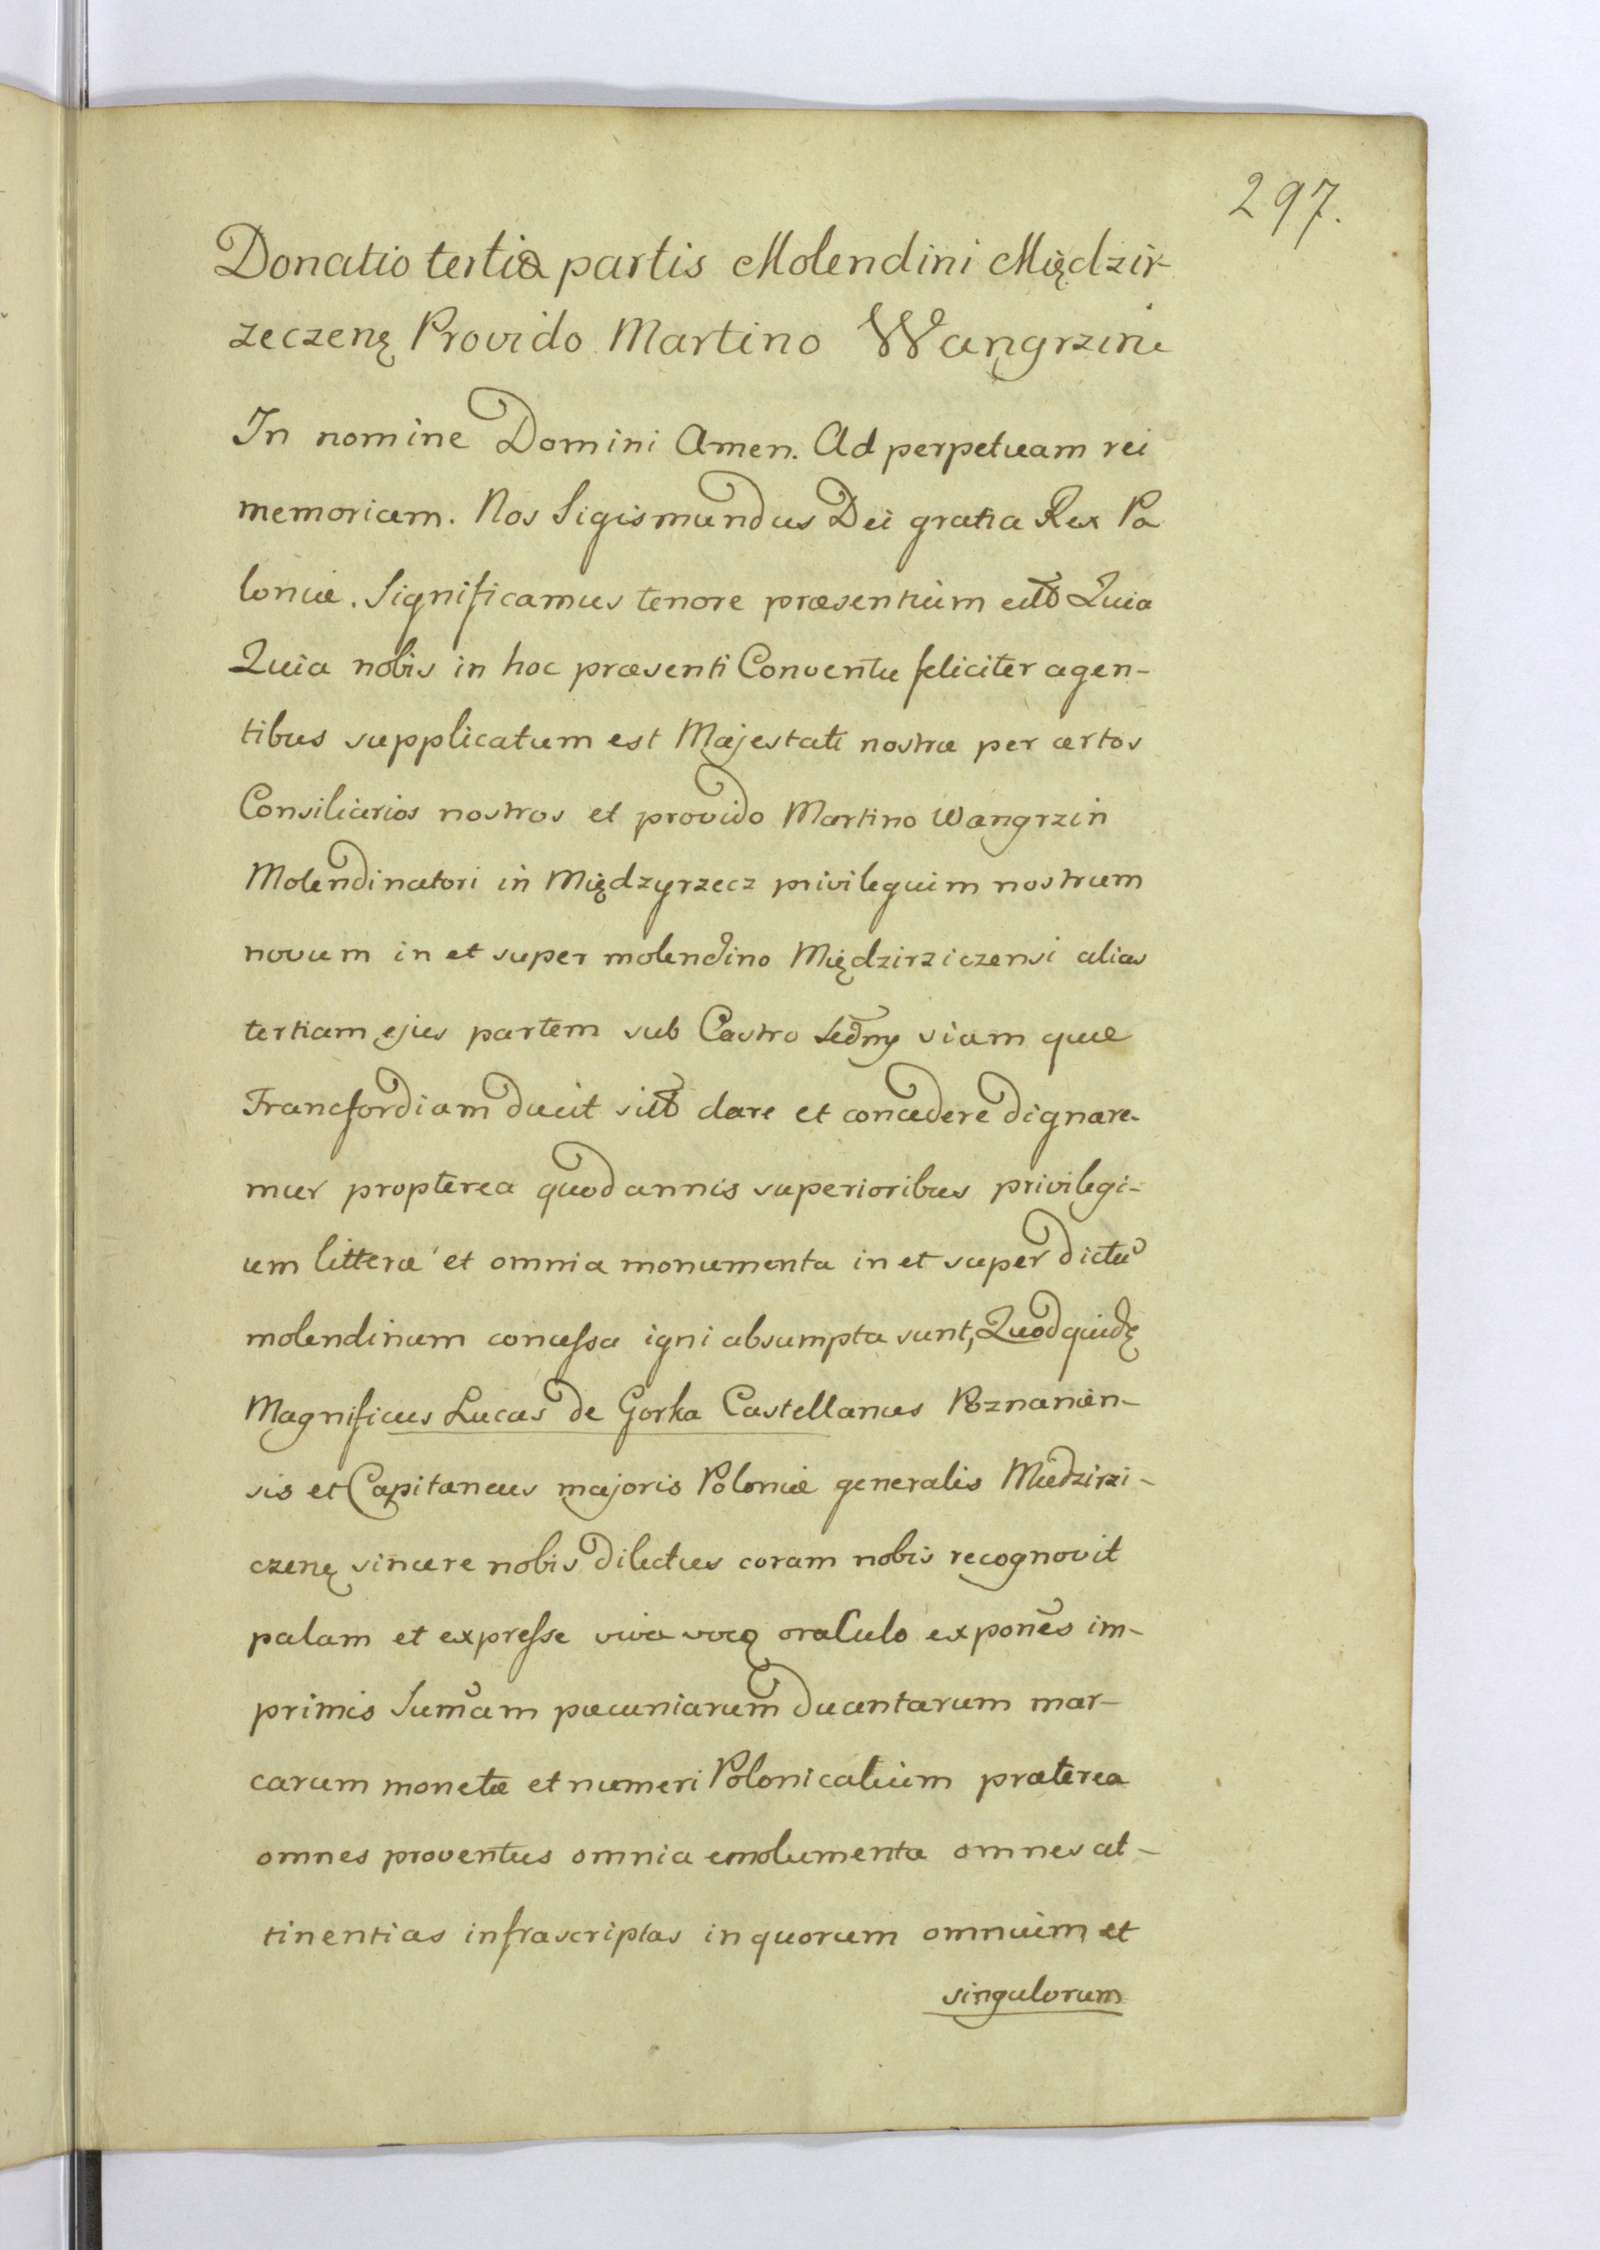 297.
Donatio tertiæ partis Molendini Międzir-
zeczenę Provido Martino Wangrzin
In nomine Domini Amen. Ad perpetuam rei
memoriam. Nos Sigismundus Dei gratia Rex Po
loniæ. Significamus tenore præsentium Quia
Quia nobis in hoc præsenti Conventu feliciter agen-
tibus supplicatum est Majestati nostræ per certos
Consiliarios nostros et provido Martino Wangrzin
Molendinatori in Międzyrzecz privilegium nostrum
novum in et super molendino Międzirziczensi alias
tertiam ejus partem sub Castro viam quæ
Francfordiam ducit dare et concedere dignare-
mur propterea quod annis superioribus privilegi-
um litteræ et omnia monumenta in et super dictū
molendinum concessa igni absumpta sunt, Quodquidę
Magnificus Lucas de Gorka Castellanus Poznanien-
sis et Capitaneus majoris Poloniæ generalis Miedzirzi-
czenę sincere nobis dilectus coram nobis recognovit
palam et expresse viva vocę oraculo exponēs im-
primis Sum̄am pecuniarum ducentarum mar-
carum monetæ et numeri Polonicalium præterea
omnes proventus omnia emolumenta omnes at-
tinentias infrascriptas in quorum omnium et
singulorum